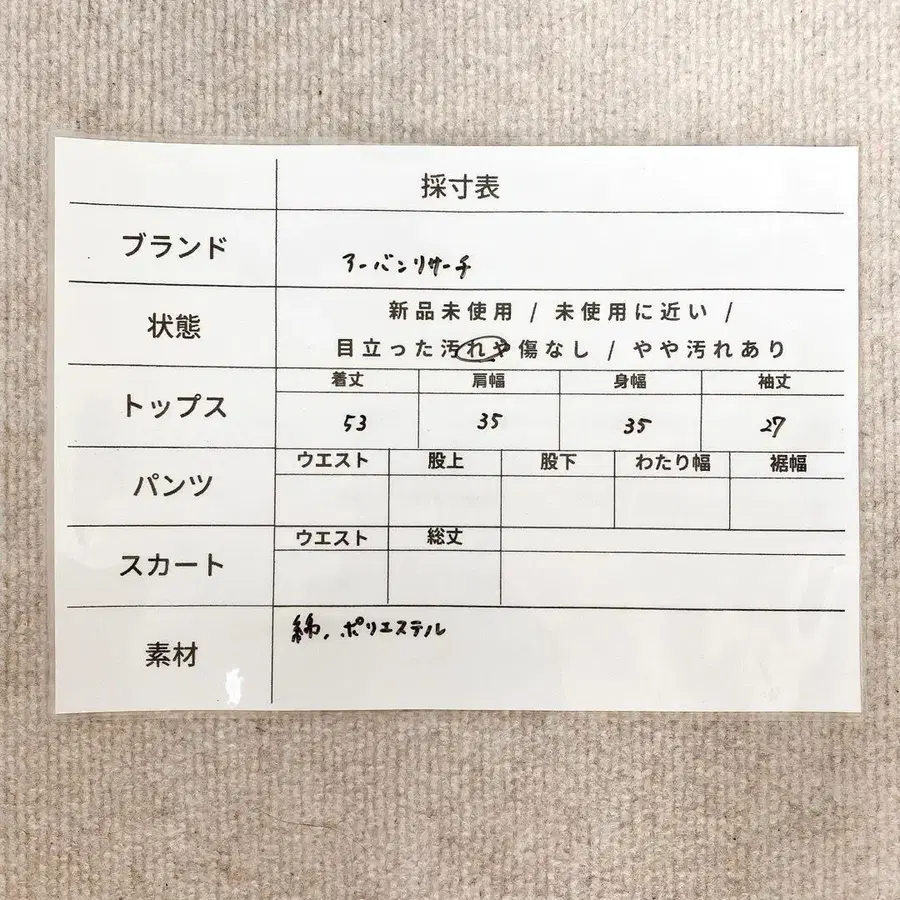 採寸表
ブランド
アーバンリサーチ
状態
新品未使用 / 未使用に近い /
目立った汚れや傷なし / やや汚れあり
トップス
着丈 肩幅 身幅 袖丈
53 35 35 27
パンツ
ウエスト 股上 股下 わたり幅 裾幅
スカート
ウエスト 総丈
素材
綿、ポリエステル